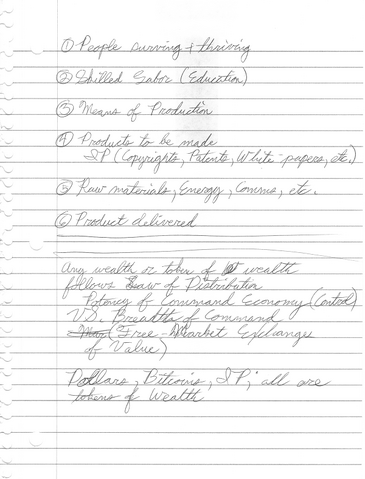 ① People surving + thriving
② Skilled Labor (Education)
③ Means of Production
④ Products to be made
IP (Copyrights, Patents, White-papers, etc.)
⑤ Raw materials, Energy, Comms, etc.
⑥ Product delivered
Any wealth or token of wealth
follows Law of Distribution
Potency of Command Economy (Control)
V.S. Breadth of Command
(Free-Market Exchange
of Value)
Dollars, Bitcoins, IP; all are
tokens of Wealth